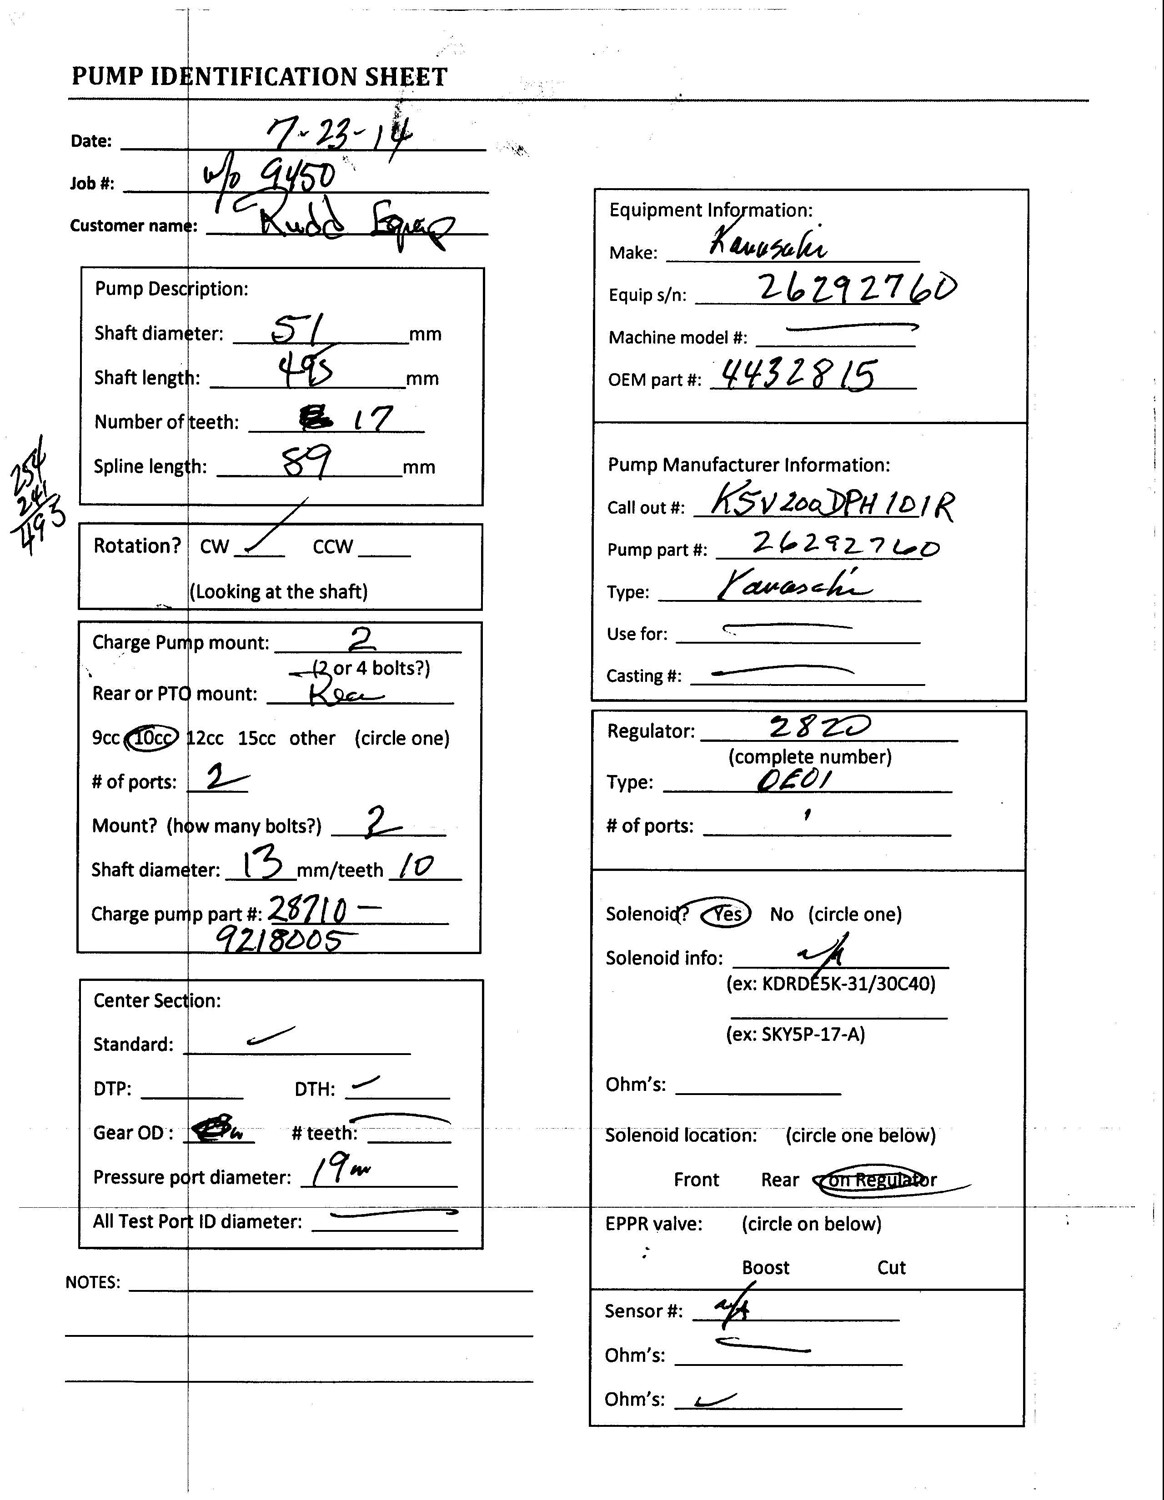 PUMP IDENTIFICATION SHEET
Date: 7-23-14
Job #: w/o 9450
Customer name: Rudd Equip
Pump Description:
Shaft diameter: 51 mm
Shaft length: 495 mm
Number of teeth: 17
Spline length: 89 mm
254
241
493
Rotation? CW ✓ CCW
(Looking at the shaft)
Charge Pump mount: 2
(2 or 4 bolts?)
Rear or PTO mount: Rear
9cc 10cc 12cc 15cc other (circle one)
# of ports: 2
Mount? (how many bolts?) 2
Shaft diameter: 13 mm/teeth 10
Charge pump part #: 28710 -
9218005
Center Section:
Standard: ✓
DTP: DTH: ✓
Gear OD : # teeth:
Pressure port diameter: 19m
All Test Port ID diameter:
NOTES:
Equipment Information:
Make: Kawasaki
Equip s/n: 26292760
Machine model #:
OEM part #: 4432815
Pump Manufacturer Information:
Call out #: K5V200DPH101R
Pump part #: 26292760
Type: Kawasaki
Use for:
Casting #:
Regulator: 2820
(complete number)
Type: 0E01
# of ports:
Solenoid? Yes No (circle one)
Solenoid info: n/A
(ex: KDRDE5K-31/30C40)
(ex: SKY5P-17-A)
Ohm's:
Solenoid location: (circle one below)
Front Rear on Regulator
EPPR valve: (circle on below)
Boost Cut
Sensor #: n/A
Ohm's:
Ohm's: ✓